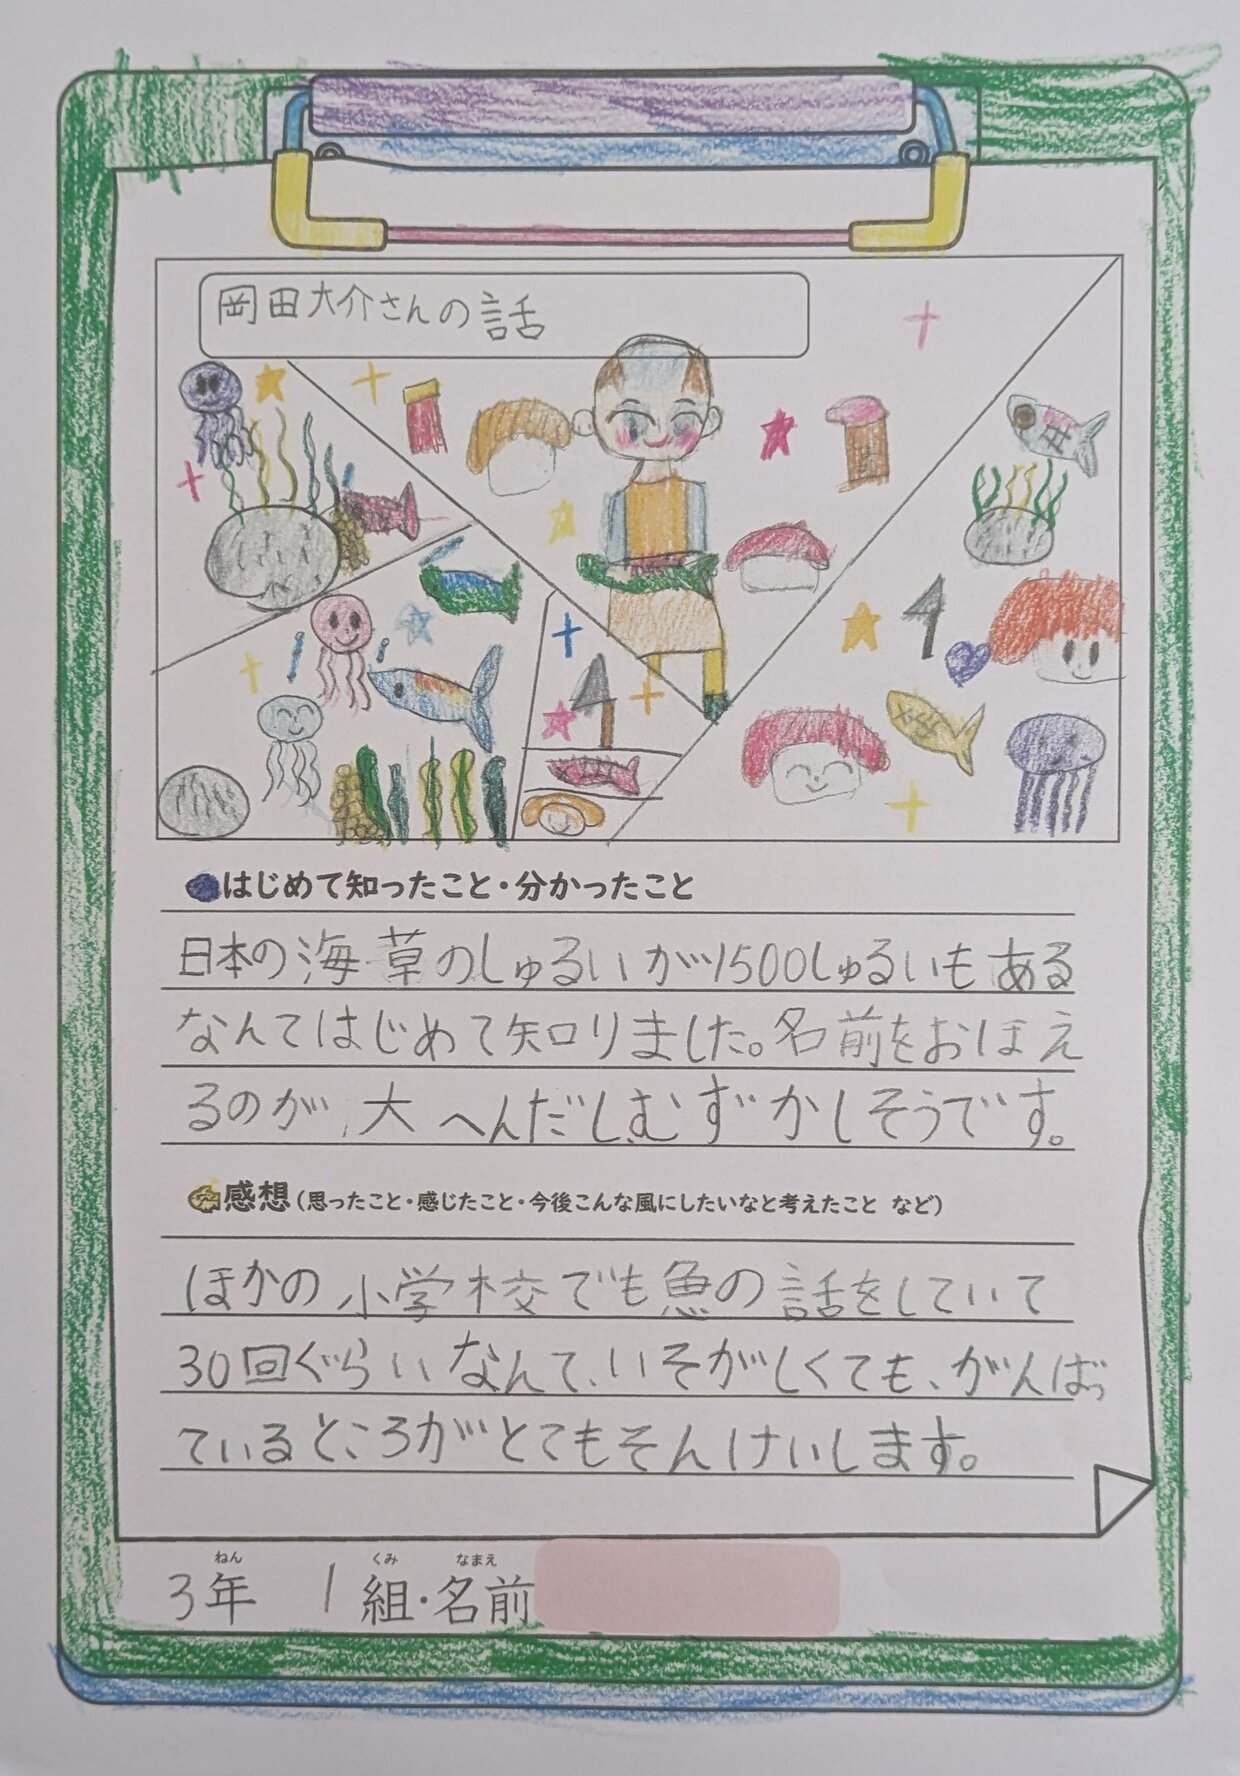 岡田大介さんの話
はじめて知ったこと・分かったこと
日本の海草のしゅるいが1500しゅるいもある
なんてはじめて知りました。名前をおぼえ
るのが、大へんだしむずかしそうです。
感想(思ったこと・感じたこと・今後こんな風にしたいなと考えたこと など)
ほかの小学校でも魚の話をしていて
30回ぐらいなんて、いそがしくても、がんばっ
ているところがとてもそんけいします。
ねん くみ なまえ
3年 1組・名前